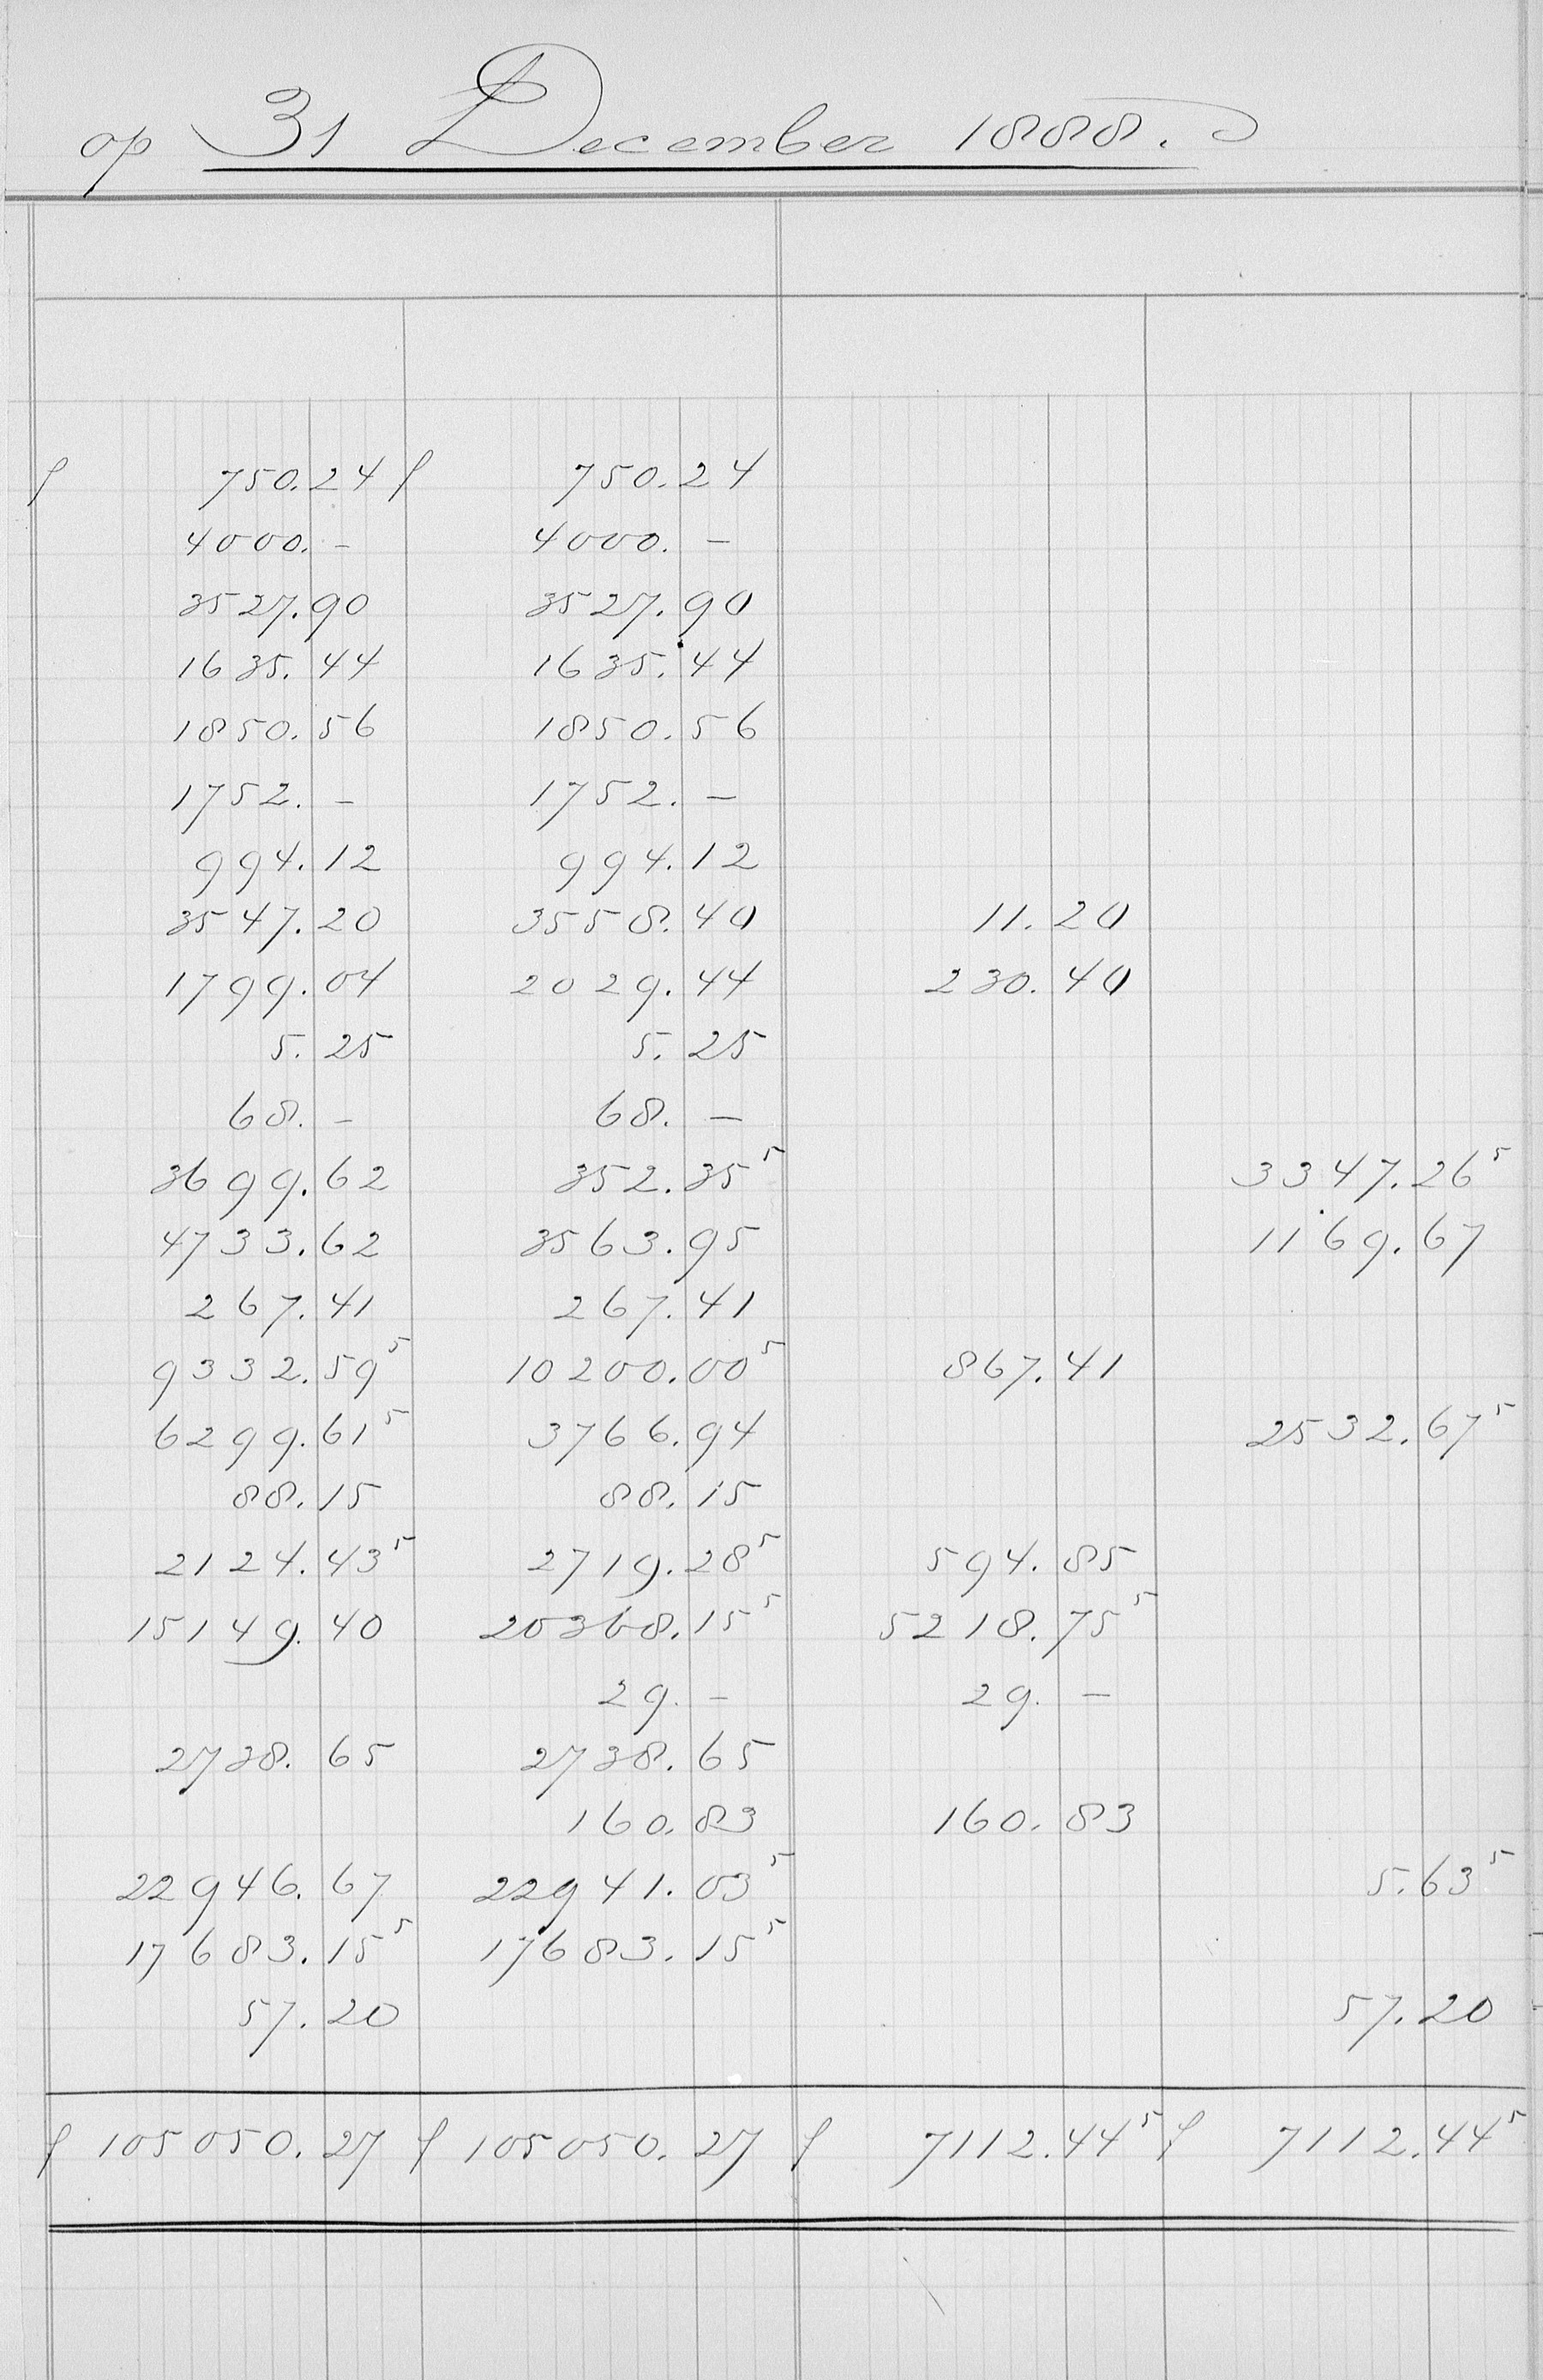 op 31 December 1888.
f 750.24 f 750.24
4000.- 4000.-
3527.90 3527.90
1635.44 1635.44
1850.56 1850.56
1752.- 1752.-
994.12 994.12
3547.20 3558.40 11.20
1799.04 2029.44 230.40
5.25 5.25
68.- 68.-
3699.62 352.35⁵ 3347.26⁵
4733.62 3563.95 1169.67
267.41 267.41
9332.59⁵ 10200.00⁵ 867.41
6299.61⁵ 3766.94 2532.67⁵
88.15 88.15
2124.43⁵ 2719.28⁵ 594.85
15149.40 20368.15⁵ 5218.75⁵
29.- 29.-
2738.65 2738.65
160.83 160.83
22946.67 22941.03⁵ 5.63⁵
17683.15⁵ 17683.15⁵
57.20 57.20
f 105050.27 f 105050.27 f 7112.44⁵ f 7112.44⁵